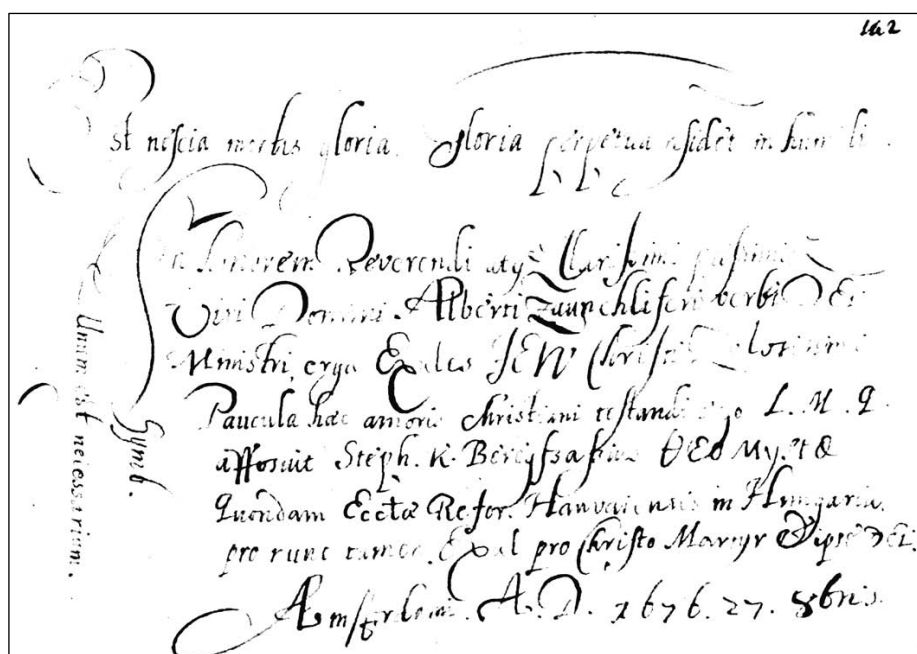 142
Est nescia morbis gloria. Gloria perpetua residet in humili.
In Honorem Reverendi atq Clarissimi
Viri Domini Alberti verbi DEI
Ministri, erga Exules IESV Christi
Paucula haec amoris Christiani testandi ergo L. M. Q.
apposuit Steph. K.
Quondam Ecctae Refor. Hanvaiensis in Hungaria,
pro nunc tamen Exul pro Christo Martyr
Amsterdami. A. D. 1676. 27. 8bris.
Symb.
Unum est necessarium.